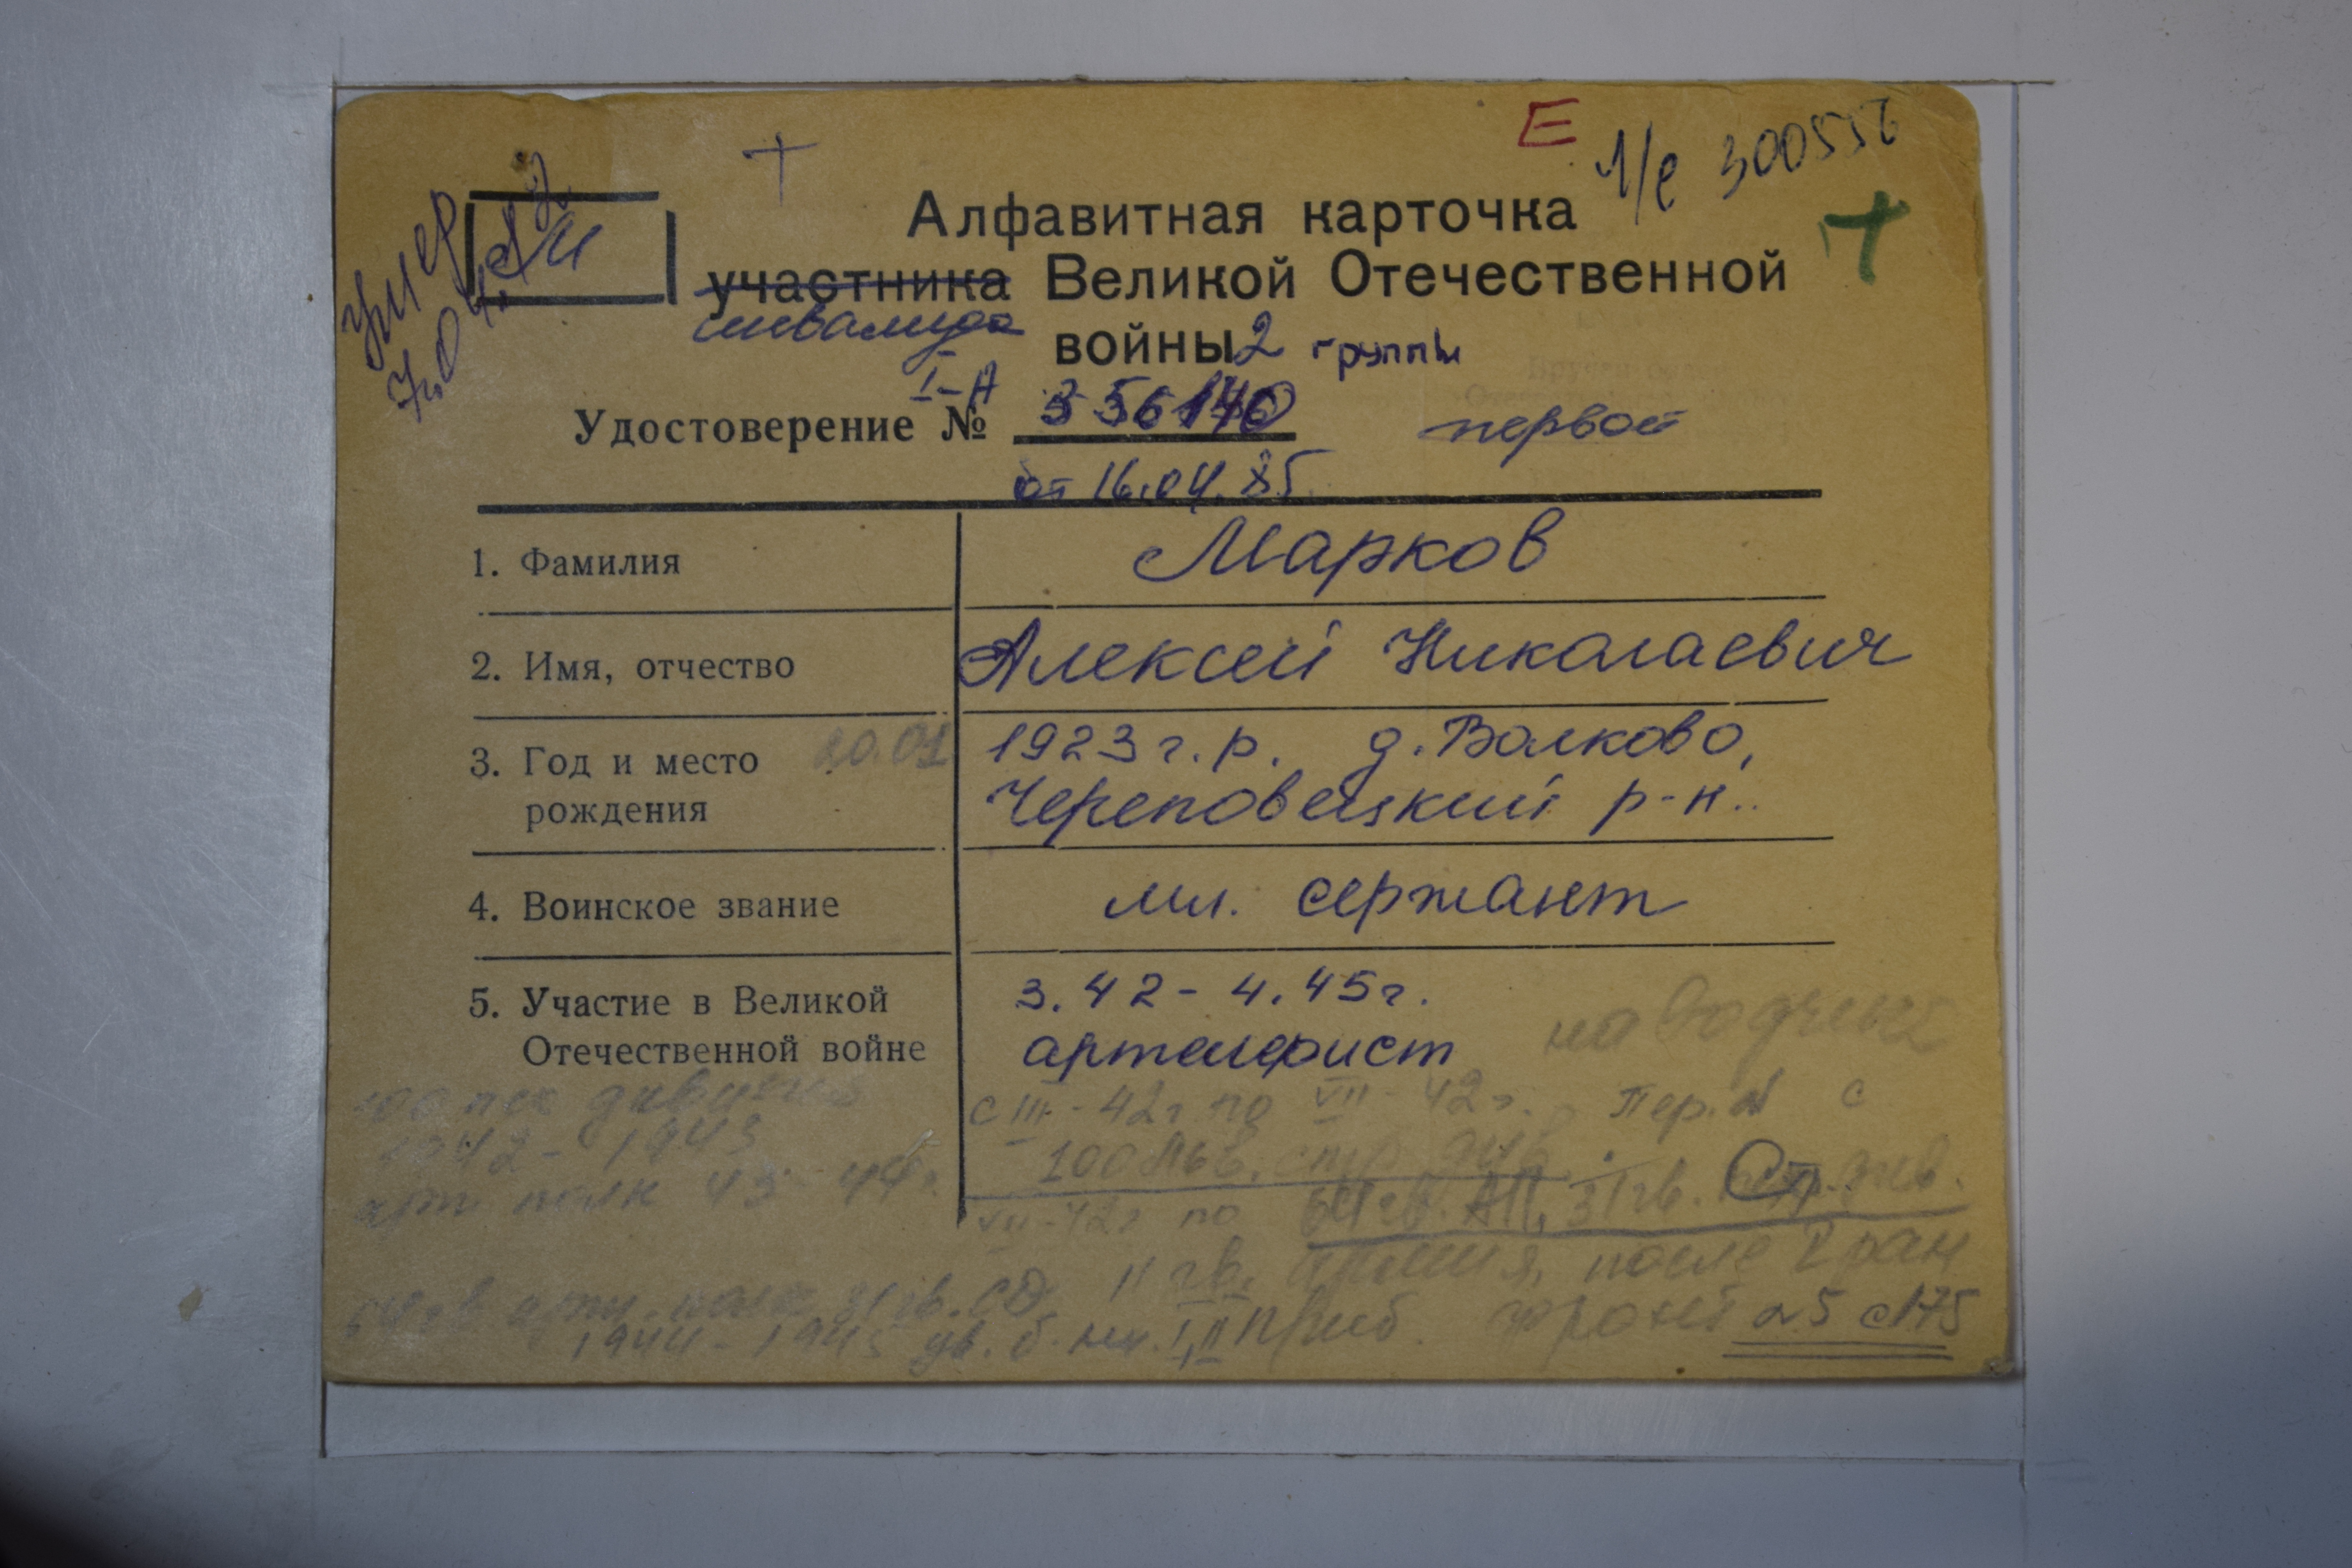 Е
1/е 30055
умер
7.04.
Алфавитная карточка
участника Великой Отечественной
инвалида
войны 2 группы
I-А
Удостоверение № 356140 первой
от 16.04.85
1. Фамилия Марков
2. Имя, отчество Алексей Николаевич
3. Год и место 20.01 1923 г.р. д. Волково,
рождения Череповецкий р-н..
4. Воинское звание мл. сержант
5. Участие в Великой 3.42 - 4.45г.
Отечественной войне артелерист наводчик
1942 - 1943
арт полк 43 - 44г.
с III - 42г по VII - 42г. Пер. с
100 Льв. стр. див.
VII - 42г по 64 гв. АП, 31 гв. Стр. див.
11 гв. Армия, после ран
64 гв арт. полк 31 гв. СД
1944 - 1945 ув. б. I, II Приб. фронт 25 с 175